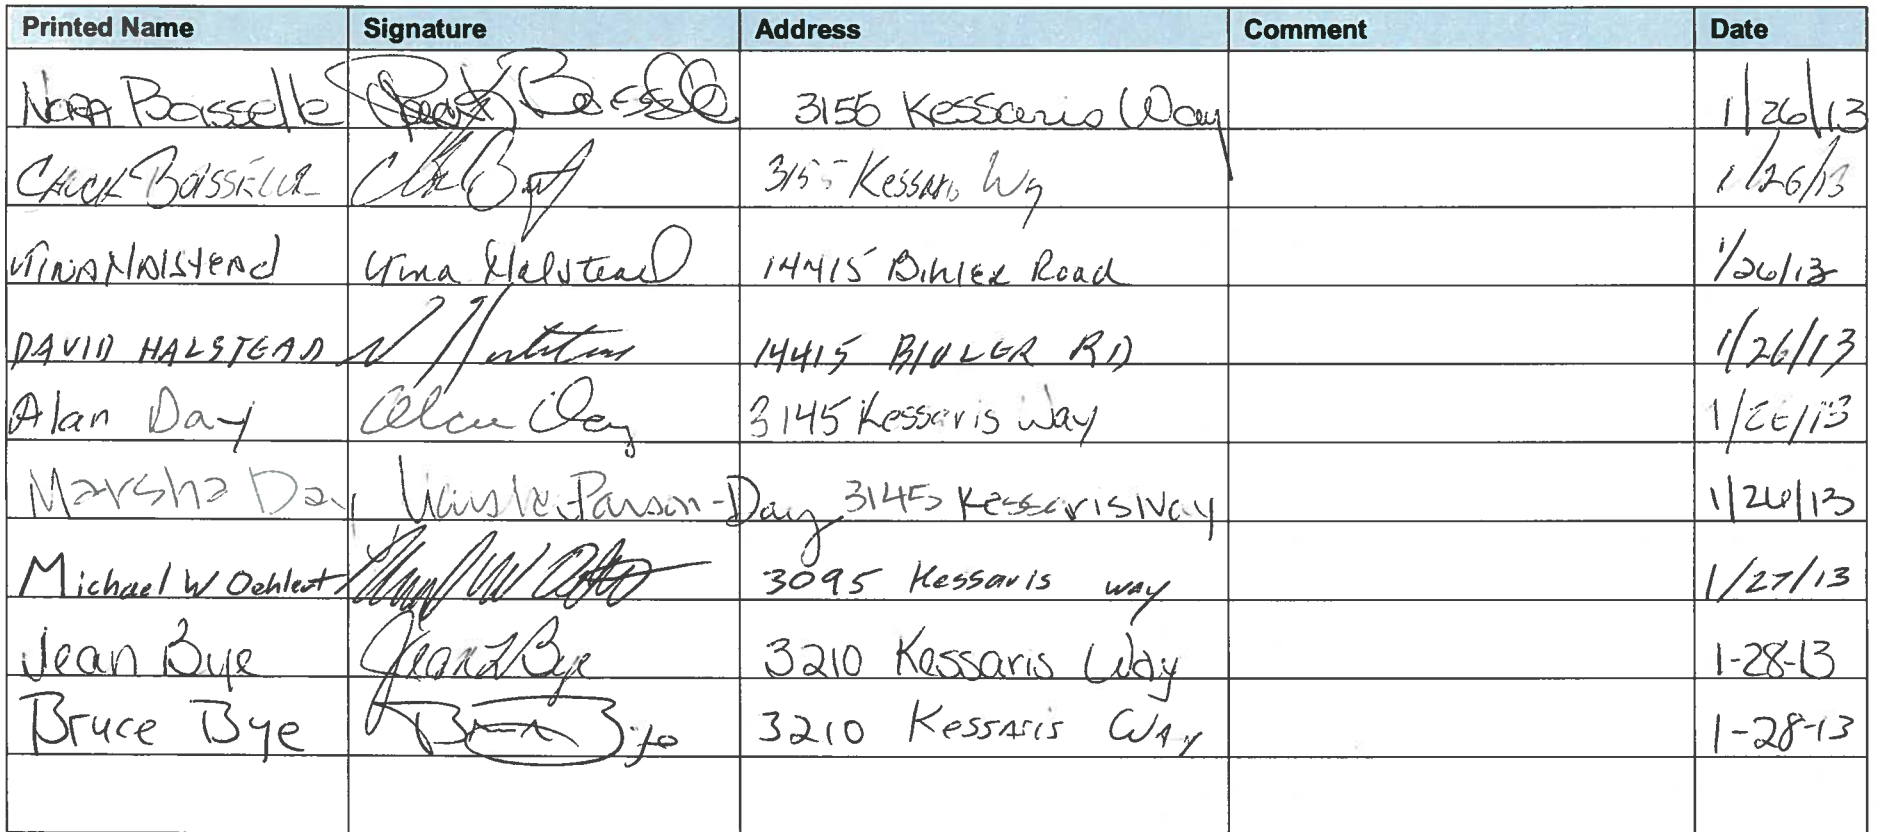 Printed Name Signature Address Comment Date
Nora Basselle Basselle 3155 Kessaris Way 1/26/13
Chuck 3155 Kessaris Wy 1/26/13
Tina Halstead Tina Halstead 14415 Bihler Road 1/26/13
DAVID HALSTEAD 14415 BIHLER RD 1/26/13
Alan Day Alan Day 3145 Kessaris Way 1/26/13
Marsha Day Marsha Parson-Day 3145 Kessaris Way 1/26/13
Michael W Oehlert 3095 Kessaris way 1/27/13
Jean Bye Jean L Bye 3210 Kessaris Way 1-28-13
Bruce Bye Bye 3210 Kessaris Way 1-28-13